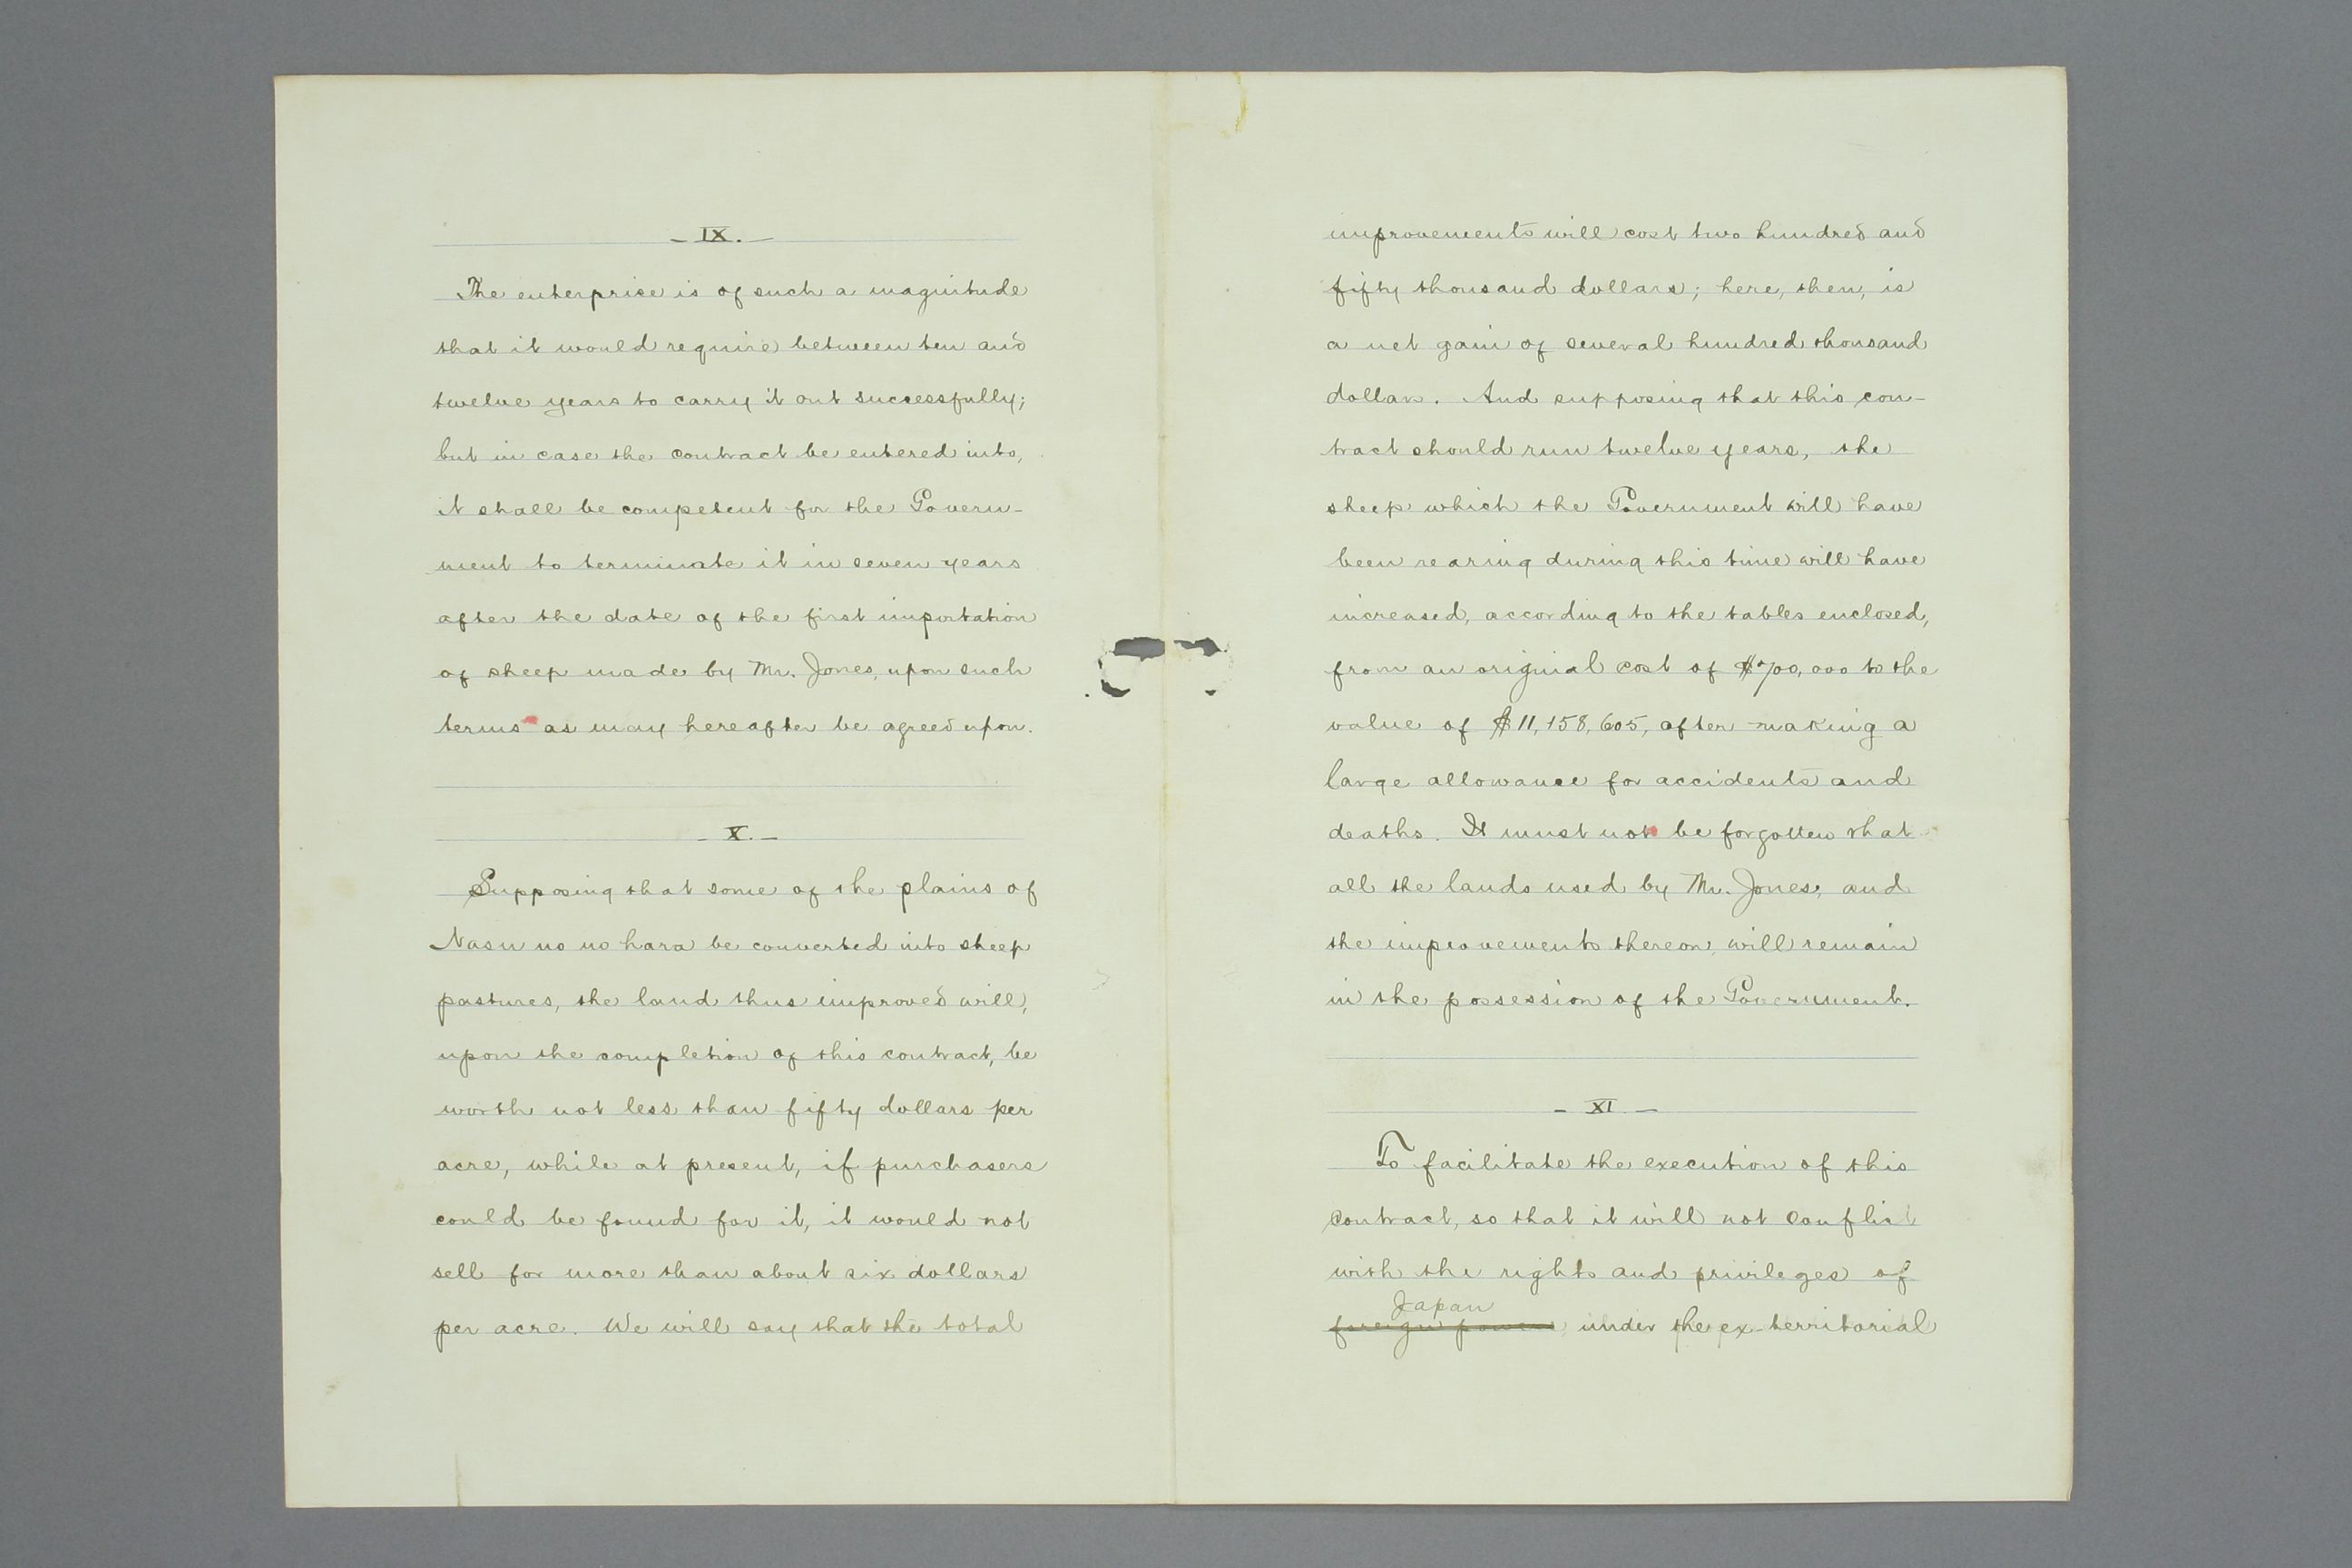 - IX. -
The enterprise is of such a magnitude
that it would require between ten and
twelve years to carry it out successfully;
but in case the contract be entered into,
it shall be competent for the Govern-
ment to terminate it in seven years
after the date of the first importation
of sheep made by Mr. Jones, upon such
terms as may hereafter be agreed upon.
- X. -
Supposing that some of the plains of
Nasu no no hara be converted into sheep
pastures, the land thus improved will,
upon the completion of this contract, be
worth not less than fifty dollars per
acre, while at present, if purchasers
could be found for it, it would not
sell for more than about six dollars
per acre. We will say that the total
improvements will cost two hundred and
fifty thousand dollars; here, then, is
a net gain of several hundred thousand
dollars. And supposing that this con-
tract should run twelve years, the
sheep which the Government will have
been rearing during this time will have
increased, according to the tables enclosed,
from an original cost of $700,000 to the
value of $11,158,605, after making a
large allowance for accidents and
deaths. It must not be forgotten that
all the lands used by Mr. Jones, and
the improvements thereon, will remain
in the possession of the Government.
- XI. -
To facilitate the execution of this
contract, so that it will not conflict
with the rights and privileges of
Japan
foreign powers under the ex-territorial